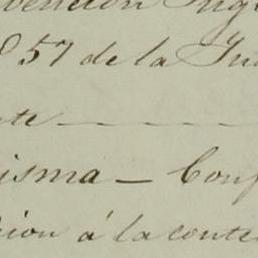 vención Ing
57 de la Jun
te
isma — Conf
cion á la conte